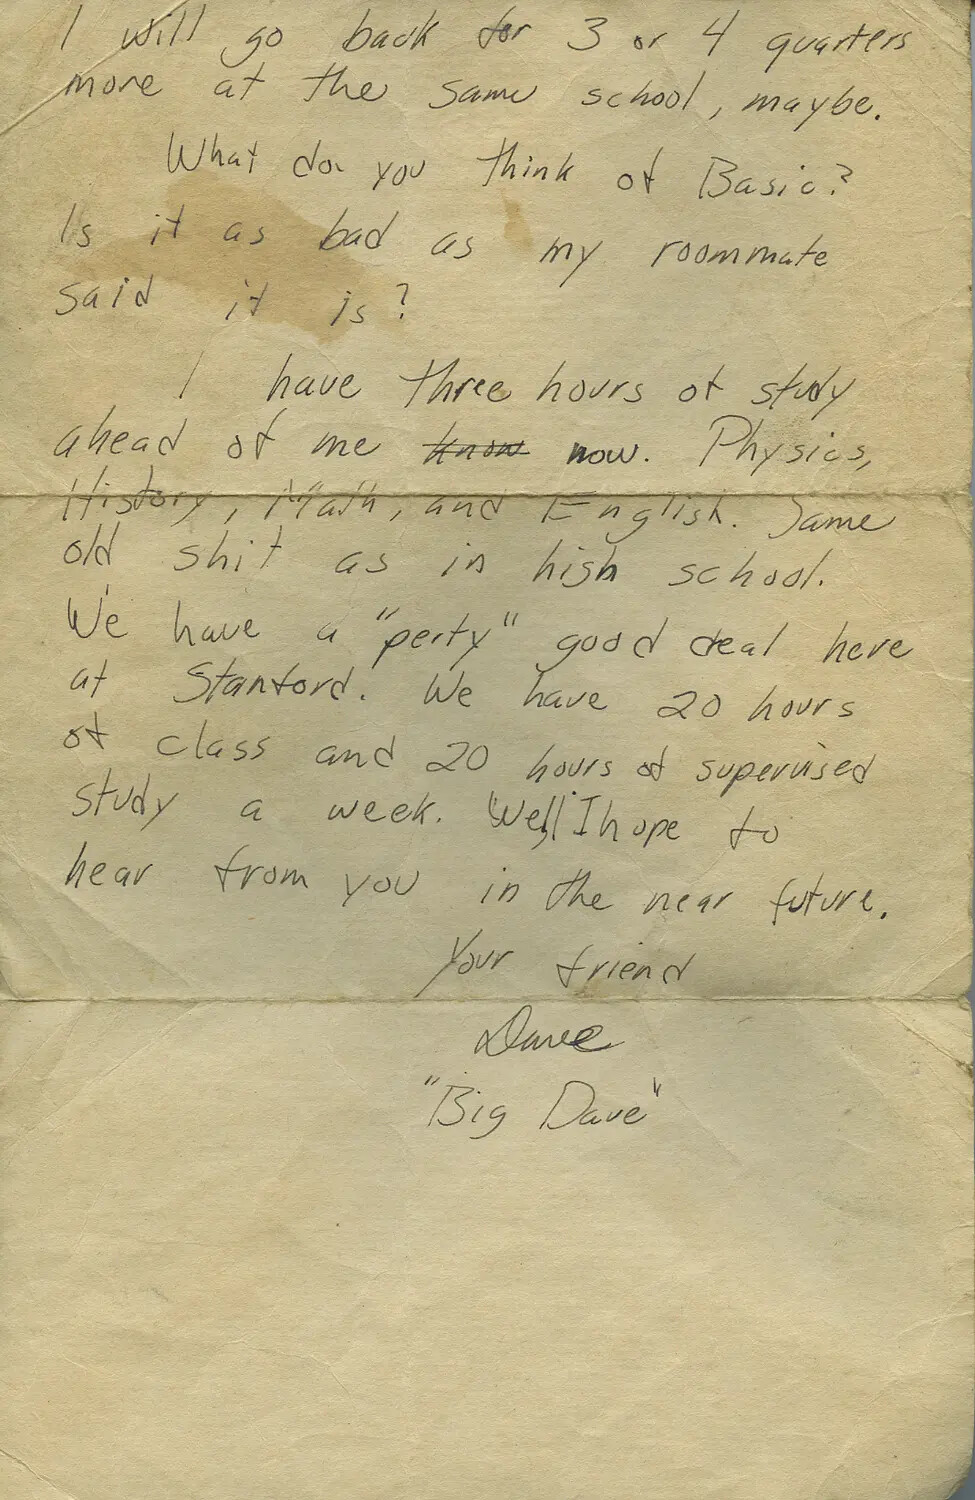 I will go back for 3 or 4 quarters
more at the same school, maybe.
What do you think of Basic?
Is it as bad as my roommate
said it is?
I have three hours of study
ahead of me know now. Physics,
History, Math, and English. Same
old shit as in high school.
We have a "perty" good deal here
at Stanford. We have 20 hours
of class and 20 hours of supervised
study a week. Well, I hope to
hear from you in the near future.
Your friend
Dave
"Big Dave"